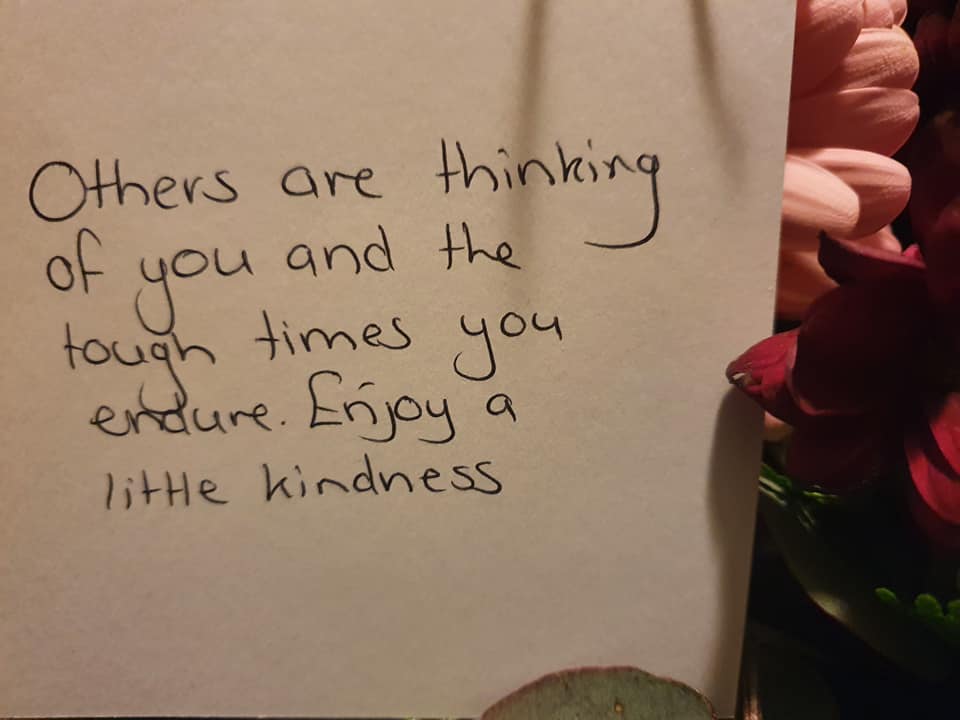 Others are thinking
of you and the
tough times you
endure. Enjoy a
little kindness